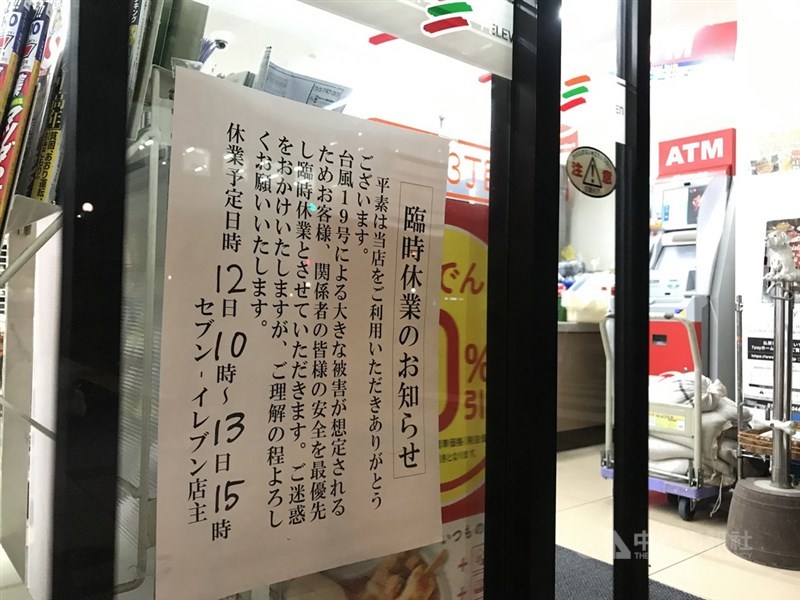 臨時休業のお知らせ
平素は当店をご利用いただきありがとう
ございます。
台風19号による大きな被害が想定される
ためお客様、関係者の皆様の安全を最優先
し臨時休業とさせていただきます。ご迷惑
をおかけいたしますが、ご理解の程よろし
くお願いいたします。
休業予定日時 12日10時~13日15時
セブン-イレブン店主
ELEV
3丁目
でん
0%
引
いつもの
注意
ATM
ATM